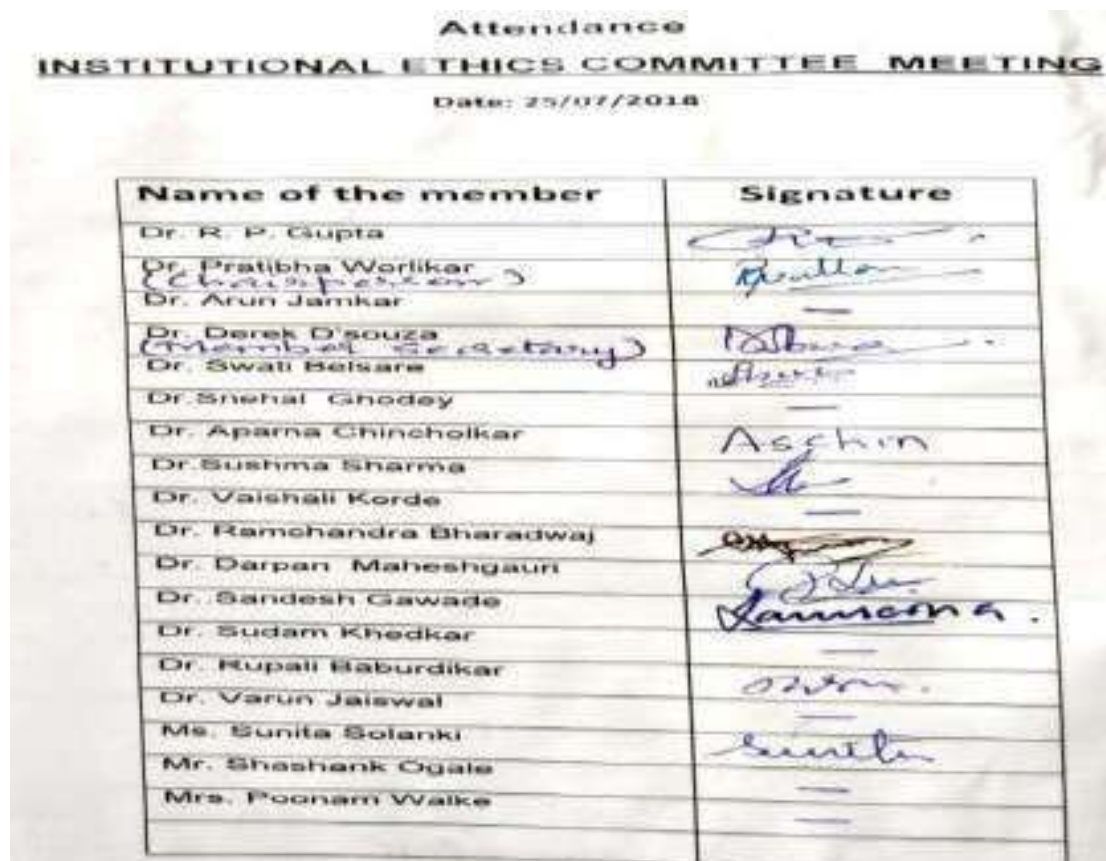 Attendance
INSTITUTIONAL ETHICS COMMITTEE MEETING
Date: 25/07/2018
Name of the member Signature
Dr. R. P. Gupta
Dr. Pratibha Worlikar
(Chairperson)
Dr. Arun Jamkar —
Dr. Derek D'souza
(Member Secretary)
Dr. Swati Belsare
Dr.Snehal Ghodey —
Dr. Aparna Chincholkar Aschin
Dr.Sushma Sharma
Dr. Vaishali Korde —
Dr. Ramchandra Bharadwaj
Dr. Darpan Maheshgauri
Dr. Sandesh Gawade
Dr. Sudam Khedkar —
Dr. Rupali Baburdikar
Dr. Varun Jaiswal —
Ms. Sunita Solanki
Mr. Shashank Ogale —
Mrs. Poonam Walke —